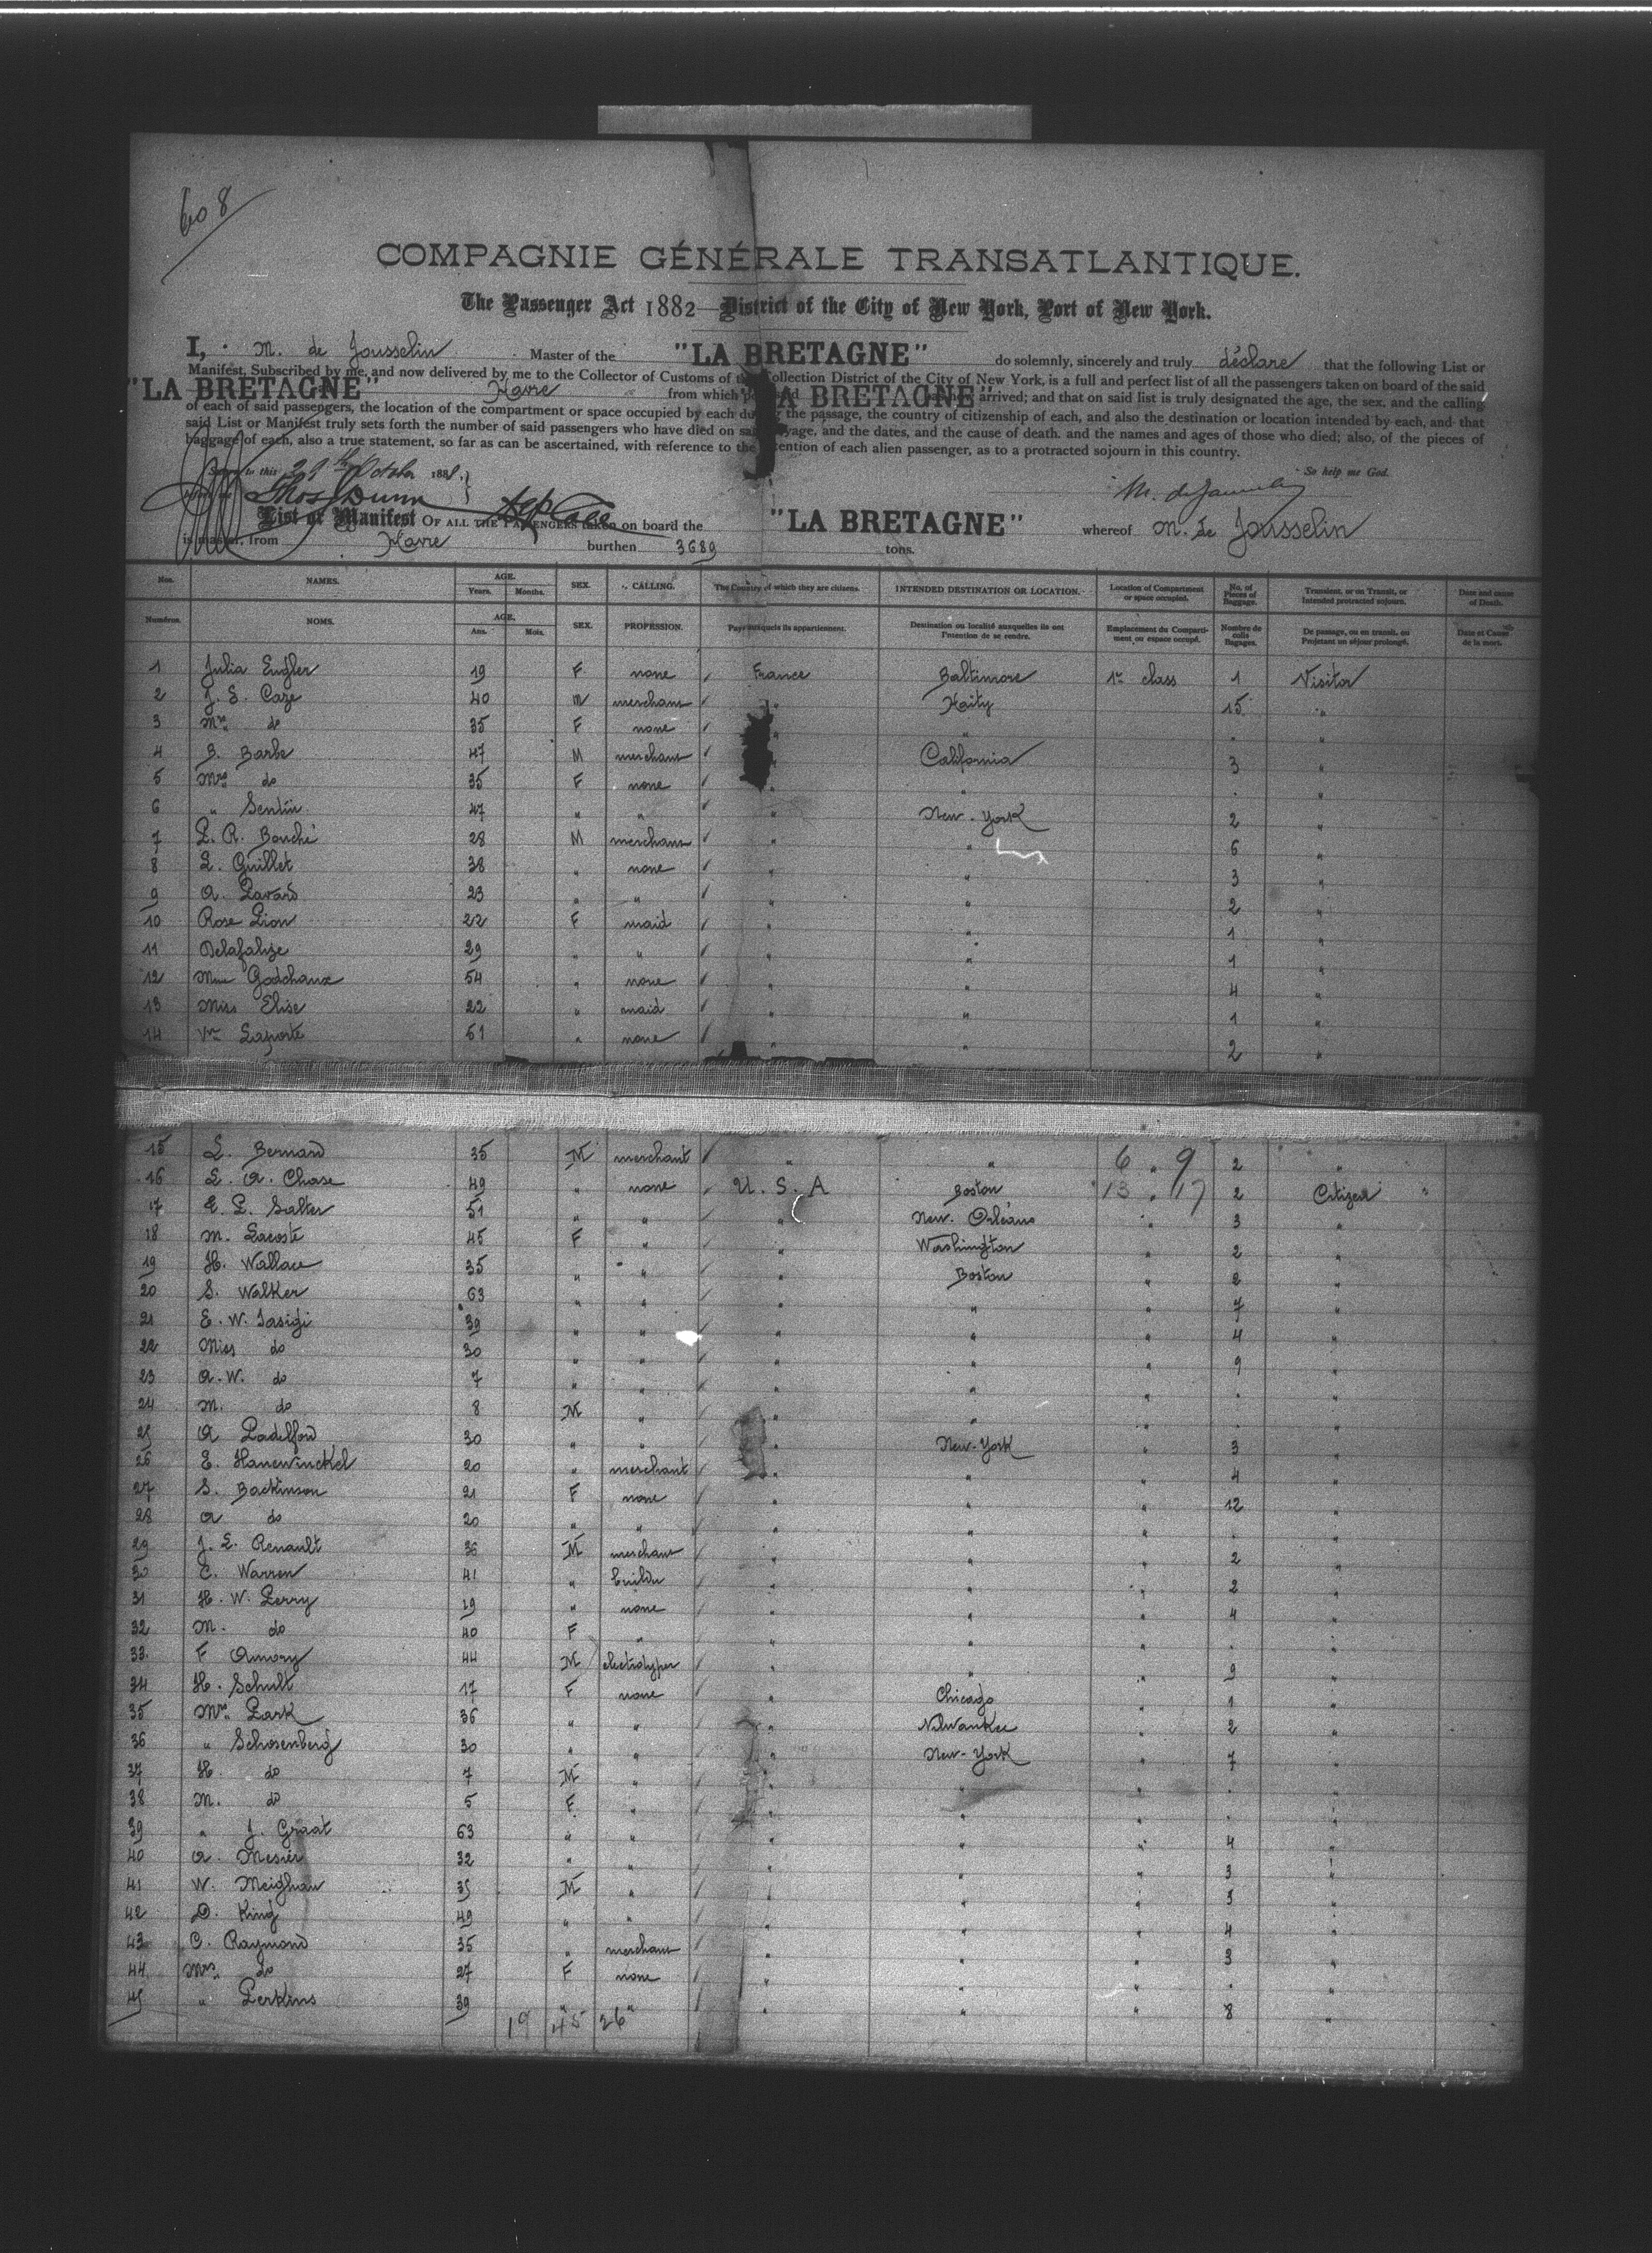 608
COMPAGNIE GÉNÉRALE TRANSATLANTIQUE.
The Passenger Act 1882—District of the City of New York, Port of New York.
I, M. de Jousselin Master of the "LA BRETAGNE" do solemnly, sincerely and truly déclare that the following List or
Manifest, Subscribed by me, and now delivered by me to the Collector of Customs of the Collection District of the City of New York, is a full and perfect list of all the passengers taken on board of the said
"LA BRETAGNE" Havre from which port said "LA BRETAGNE" arrived; and that on said list is truly designated the age, the sex, and the calling
of each of said passengers, the location of the compartment or space occupied by each during the passage, the country of citizenship of each, and also the destination or location intended by each, and that
said List or Manifest truly sets forth the number of said passengers who have died on said voyage, and the dates, and the cause of death. and the names and ages of those who died; also, of the pieces of
baggage of each, also a true statement, so far as can be ascertained, with reference to the intention of each alien passenger, as to a protracted sojourn in this country.
Sworn to this 29th October 1888, So help me God.
Thos Dunn
List or Manifest OF ALL THE PASSENGERS taken on board the "LA BRETAGNE" whereof M. de Jousselin
is master, from Havre burthen 3689 tons.
Nos. NAMES. AGE. Years. Months. SEX. CALLING. The Country of which they are citizens. INTENDED DESTINATION OR LOCATION. Location of Compartment or space occupied. No. of Pieces of Baggage. Transient, or on Transit, or Intended protracted sojourn. Date and cause of Death.
Numéros. NOMS. AGE. Ans. Mois. SEX. PROFESSION. Pays auxquels ils appartiennent. Destination ou localité auxquelles ils ont l'intention de se rendre. Emplacement du Compartiment ou espace occupé. Nombre de colis Bagages. De passage, ou en transit, ou Projetant un séjour prolongé. Date et Cause de la mort.
1 Julia Engler 19 F none France Baltimore 1re class 1 Visitor
2 J. E. Caze 40 M merchant " Haity 15 "
3 Mrs do 35 F none " " . "
4 B. Barbe 47 M merchant " California 3 "
5 Mrs do 35 F none " " . "
6 " Sentin 47 " " " New-York 2 "
7 L. R. Bouché 28 M merchant " " 6 "
8 L. Guillet 38 " none " " 3 "
9 A. Lavard 23 " " " " 2 "
10 Rose Lion 22 F maid " " 1 "
11 Delafalize 29 " " " " 1 "
12 Mme Godchaux 54 " none " " 4 "
13 Miss Elise 22 " maid " " 1 "
14 Vve Laporte 51 " none " " 2 "
15 L. Bernard 35 M merchant " " 6 " 9 2 "
16 L. A. Chase 49 " none U.S.A Boston 13 " 17 2 Citizen "
17 E. L. Salter 51 " " " New. Orléans " 3 "
18 M. Lacoste 45 F " " Washington " 2 "
19 H. Wallace 35 " " " Boston " 2 "
20 S. Walker 63 " " " " " 7 "
21 E. W. Iasigi 39 " " " " " 4 "
22 Miss do 30 " " " " " 9 "
23 A. W. do 7 " " " " " . "
24 M. do 8 M " " " " . "
25 A Ladelford 30 " " " New-York " 3 "
26 E. Hanewinckel 20 " merchant " " " 4 "
27 S. Backinson 21 F none " " " 12 "
28 A do 20 " " " " " . "
29 J. E. Renault 36 M merchant " " " 2 "
30 C. Warren 41 " builder " " " 2 "
31 H. W. Perry 19 " none " " " 4 "
32 M. do 40 F " " " " . "
33. F Amory 44 M electrotyper " " " 9 "
34 H. Schult 17 F none " Chicago " 1 "
35 Mrs. Park 36 " " " Milwankee " 2 "
36 " Schosenberg 30 " " " New-York " 7 "
37 H. do 7 M " " " " . "
38 M. do 5 F. " " " " . "
39 " J. Graat 63 " " " " " 4 "
40 A. Mesier 32 " " " " " 3 "
41 W. Meighan 35 M " " " " 3 "
42 D. King 49 " " " " " 4 "
43 C. Raymond 35 " merchant " " " 3 "
44 Mrs. do 27 F none " " " . "
45 " Perkins 39 " " " " " 8 "
19 45 26